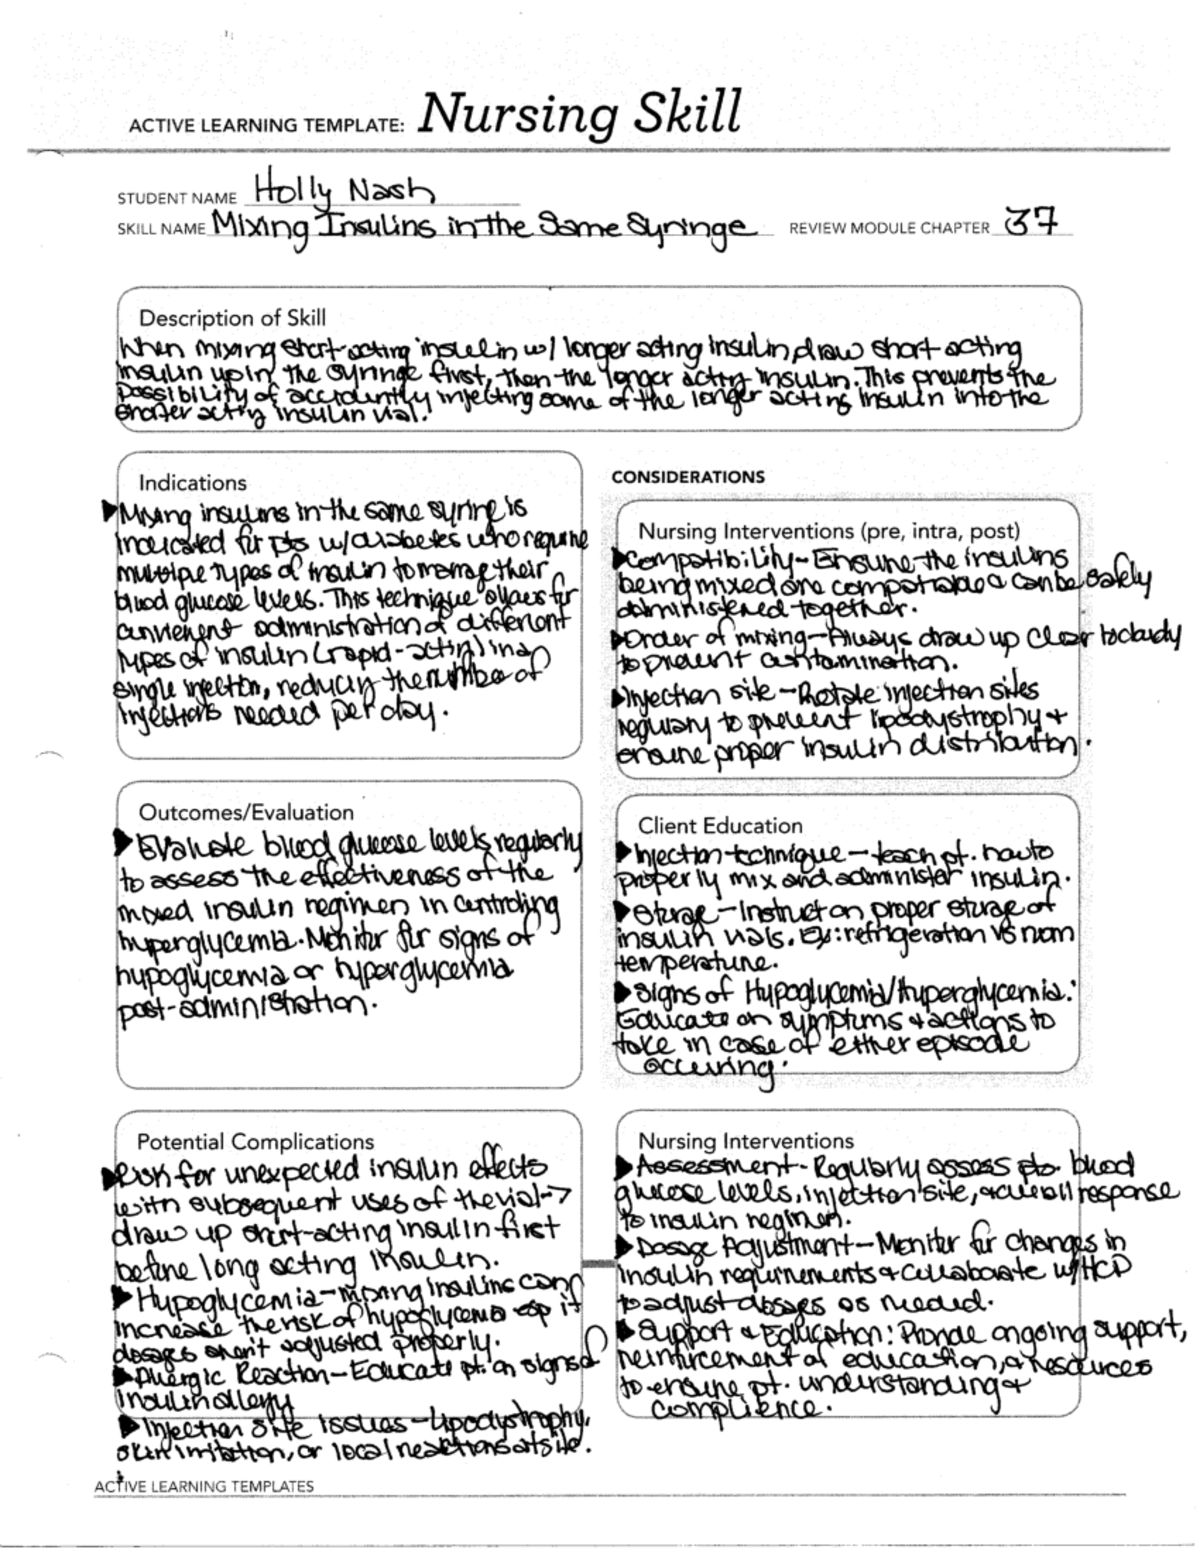 ACTIVE LEARNING TEMPLATE: Nursing Skill
STUDENT NAME Holly Nash
SKILL NAME Mixing Insulins in the Same Syringe REVIEW MODULE CHAPTER 37
Description of Skill
When mixing short-acting insulin w/ longer acting insulin draw short acting
insulin up in the syringe first, then the longer acting insulin. This prevents the
possibility of accidently injecting some of the longer acting insulin into the
shorter acting insulin vial.
Indications
Mixing insulins in the same syringe is
indicated for pts w/ diabetes who require
multiple types of insulin to manage their
blood glucose levels. This technique allows for
convienent administration of different
types of insulin (rapid-acting) in a
single injection, reducing the number of
injections needed per day.
CONSIDERATIONS
Nursing Interventions (pre, intra, post)
Compatibility - Ensure the insulins
being mixed are compatable & can be safely
administered together.
Order of mixing - Always draw up clear to cloudy
to prevent contamination.
Injection site - Rotate injection sites
regulary to prevent lipodystrophy +
ensure proper insulin distribution.
Outcomes/Evaluation
Evaluate blood glucose levels regularly
to assess the effectiveness of the
mixed insulin regimen in controling
hyperglycemia. Monitor for signs of
hypoglycemia or hyperglycemia
post-administration.
Client Education
Injection technique - teach pt. how to
properly mix and administer insulin.
Storage - Instruct on proper storage of
insulin vials. Ex: refrigeration vs room
temperature.
Signs of Hypoglycemia/Hyperglycemia:
Educate on symptoms + actions to
take in case of either episode
occuring.
Potential Complications
Risk for unexpected insulin effects
with subsequent uses of the vial →
draw up short-acting insulin first
before long acting insulin.
Hypoglycemia - mixing insulins can
increase the risk of hypoglycemia if
dosages aren't adjusted properly.
Allergic Reaction - Educate pt. on signs of
insulin allergy
Injection Site Issues - Lipodystrophy,
skin irritation, or local reactions at site.
Nursing Interventions
Assessment - Regularly assess pts. blood
glucose levels, injection site, & overall response
to insulin regimen.
Dosage Adjustment - Monitor for changes in
insulin requirements + collaborate w/ HCP
to adjust dosages as needed.
Support & Education: Provide ongoing support,
reinforcement of education, & resources
to ensure pt. understanding +
complience.
ACTIVE LEARNING TEMPLATES